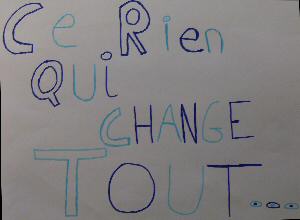 Ce Rien
QUi
CHANGE
TOUT...